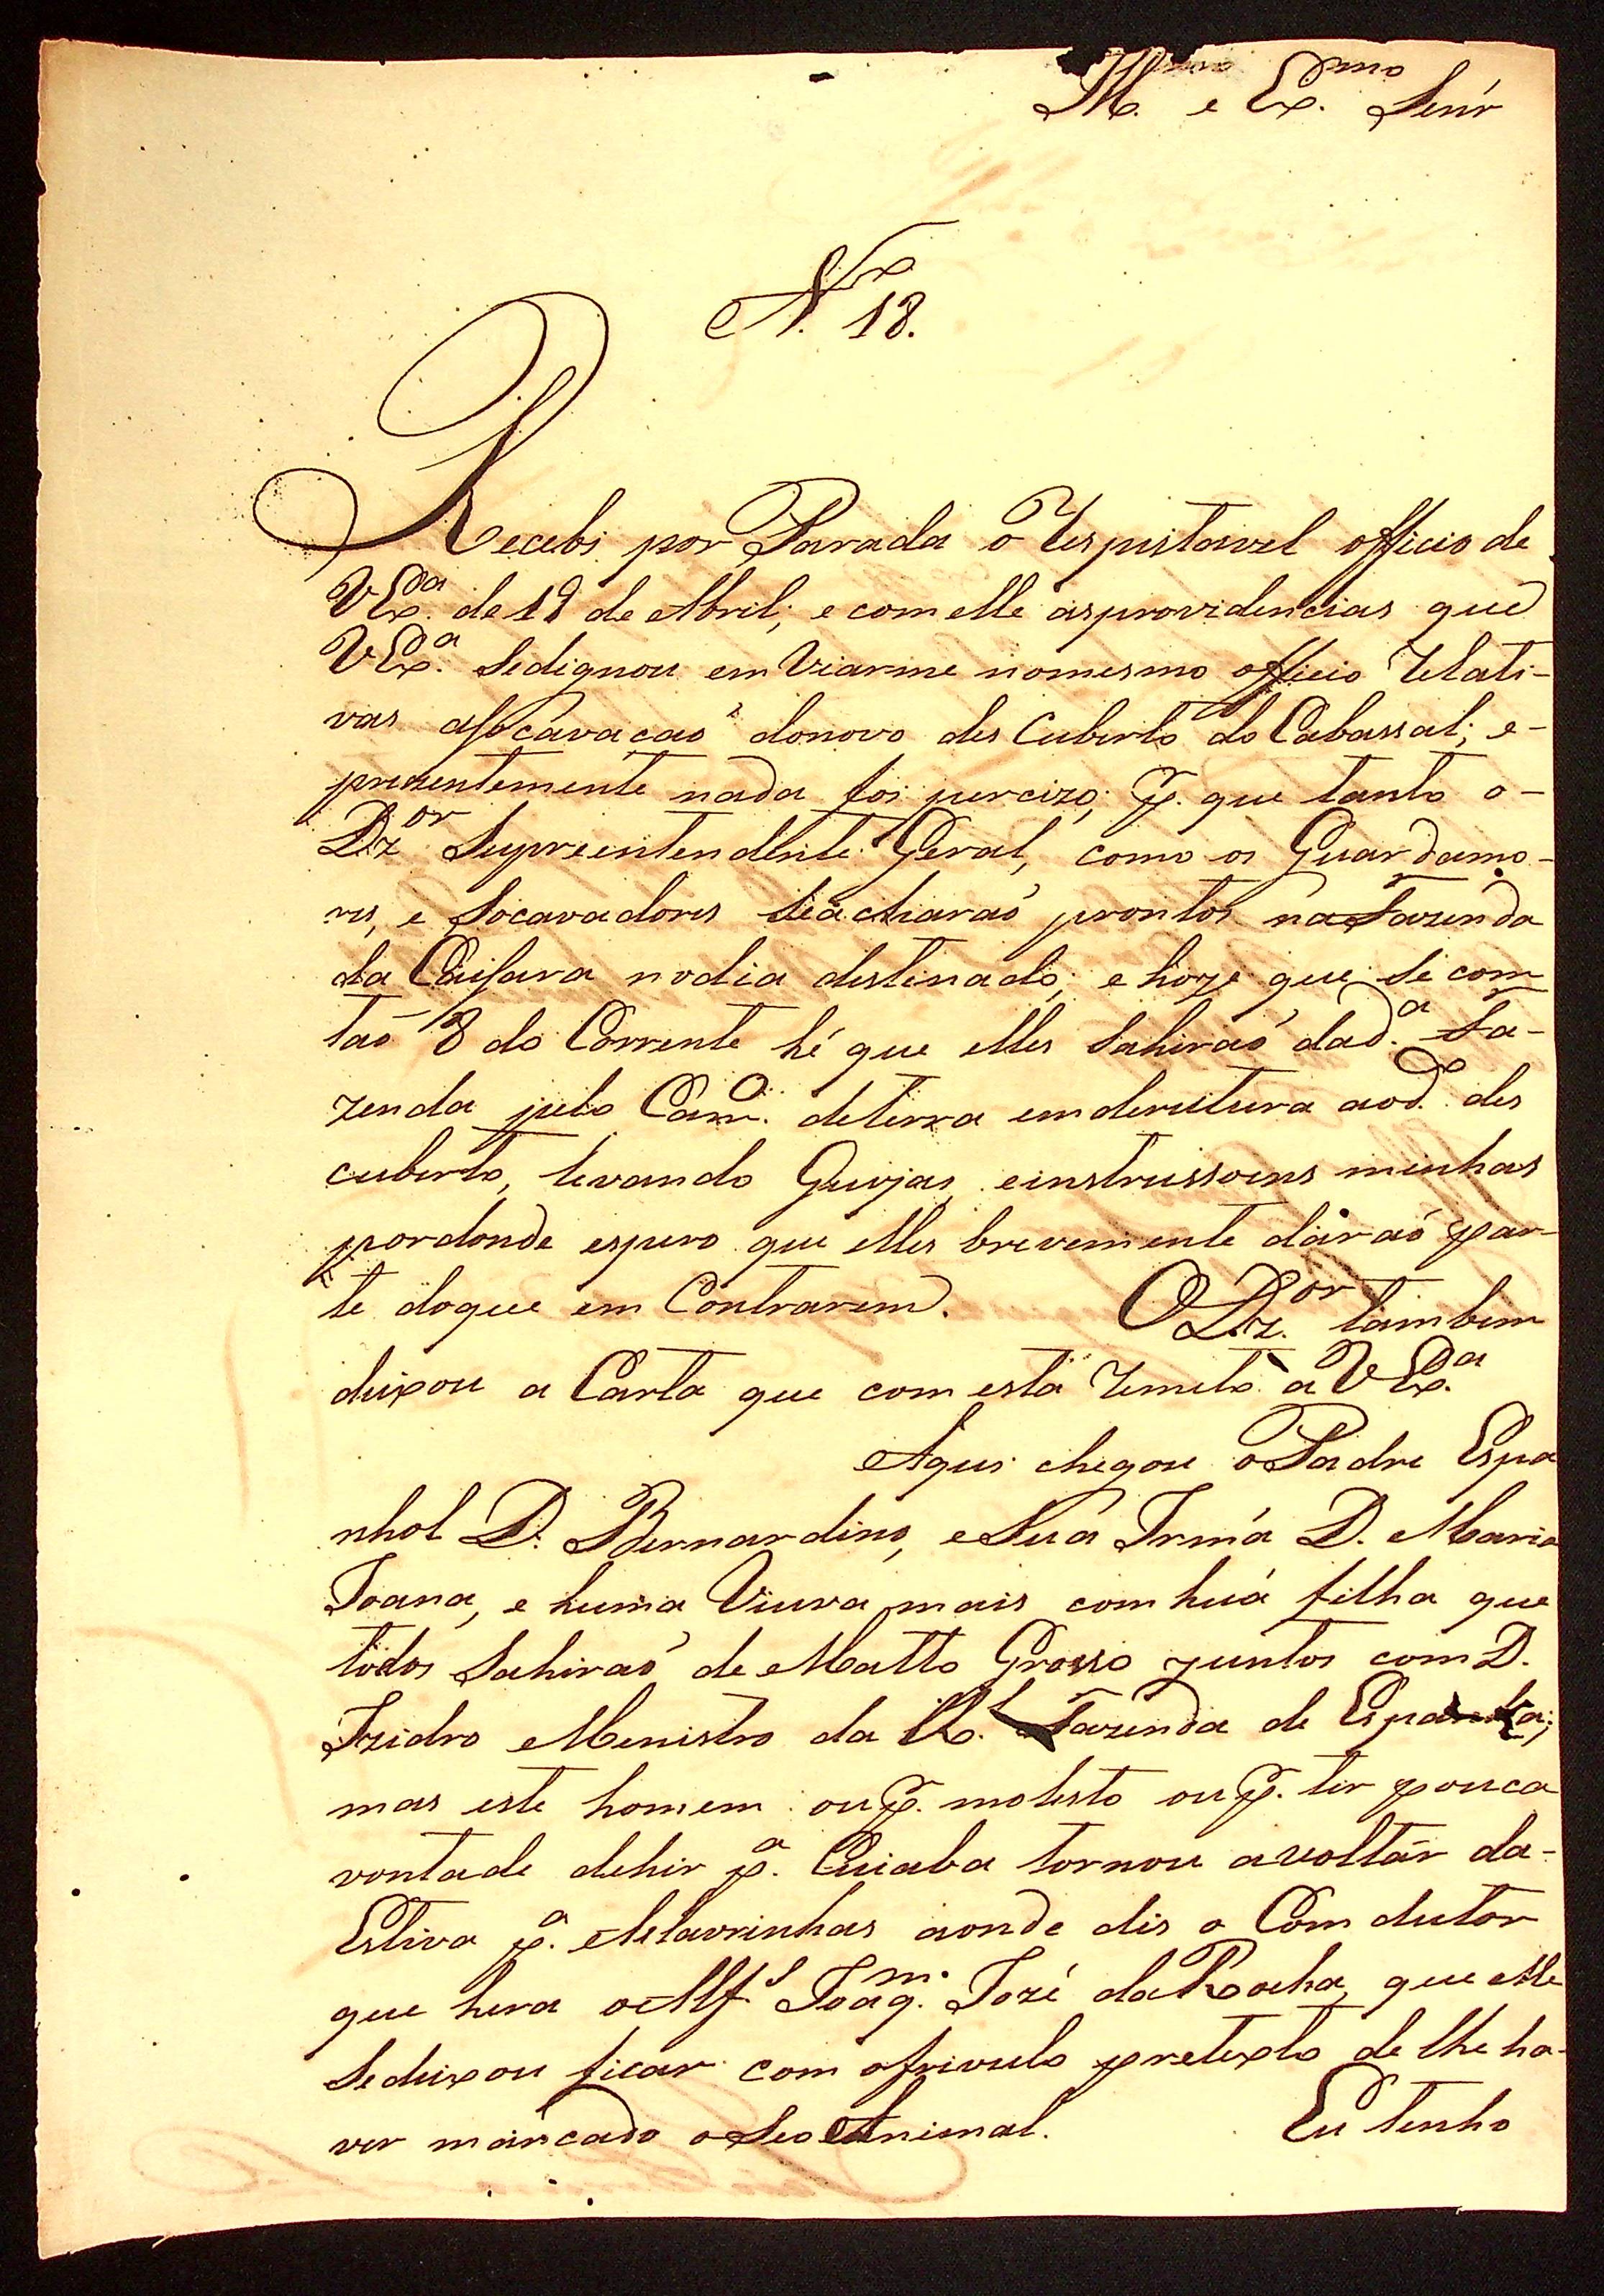 Ill.mo e Ex.mo Senr
N.º 18.
Recebi por Parada o Respeitavel officio de
V Ex.ca de 18 de Abril; e com elle as providencias que
V Ex.a Sedignou em Viarme nomesmo officio Relati-
vas asocavacaõ donovo des Cuberto do Cabassal; e-
prezentemente nada foi percizo; p. que tanto o-
Dz.or Supreentendente Geral, como os Guardamo-
res, e Socavadores Seacharaõ prontos na Fazenda
da Caiſara nodia destinado; e hoze que se com
taõ 8 do Corrente hé que elles Sahiraõ dad.a Fa-
zenda pelo Cam.o deterra emderutura aod.o des
cuberto, levando Guias, einstrussoens minhas
pordonde espero que elles brevemente daraõ par-
te doque em Contrarem. O Dz.or tambem
deixou a Carta que com esta Remeto a V Ex.a
Aqui chegou o Padre Espa
nhol D. Bernardino, e Sua Irmá D. Maria
Joana, e huma Viuva mais com huá filha que
todos Sahiraõ de Matto Grosso juntos com D.
Izidro Menistro da R.l Fazenda de Espanha;
mas este homem ou p. molesto ou p. ter pouca
vontade dehir p.a Cuiaba tornou avoltár da-
Estiva p.a Lavrinhas aonde dis o Com dutor
que hera o Alf.s Joaq.m Jozé da Rocha, que elle
Sedeixou ficar com ofrivulo pretexto de lhe ha-
ver marcado o Seo Animal. Eu tenho